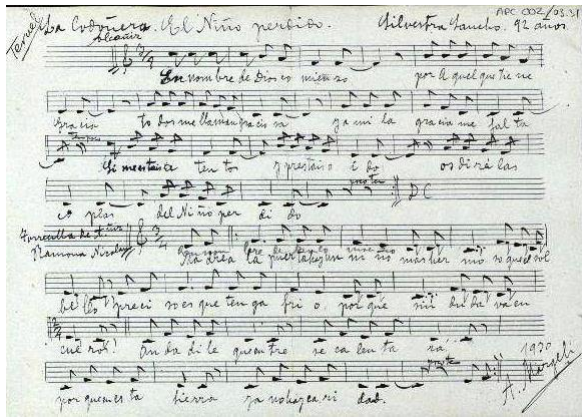 APC 002/03.31
Teruel La Codoñera. El Niño perdido. Silvestra Sancho. 92 años
Alcañiz
En nombre de Dios co mienzo por A quel que tie ne
gracia to dos me llaman gracio sa ya mi la gracia me fal ta
Si me estais a ten tos y prestais o i do os diré las
co plas del Ni ño per di do
D C
Ramona Nicolau
Ma dre a la puerta hay un ni ño mas her mo so que el sol
be llo preci so es que ten ga fri o. por que sin du da va en
cue ros! An da di le que en tre se ca len ta rá
1970
por que en es ta tierra ya no hay ca ri dad.
A. Margelí